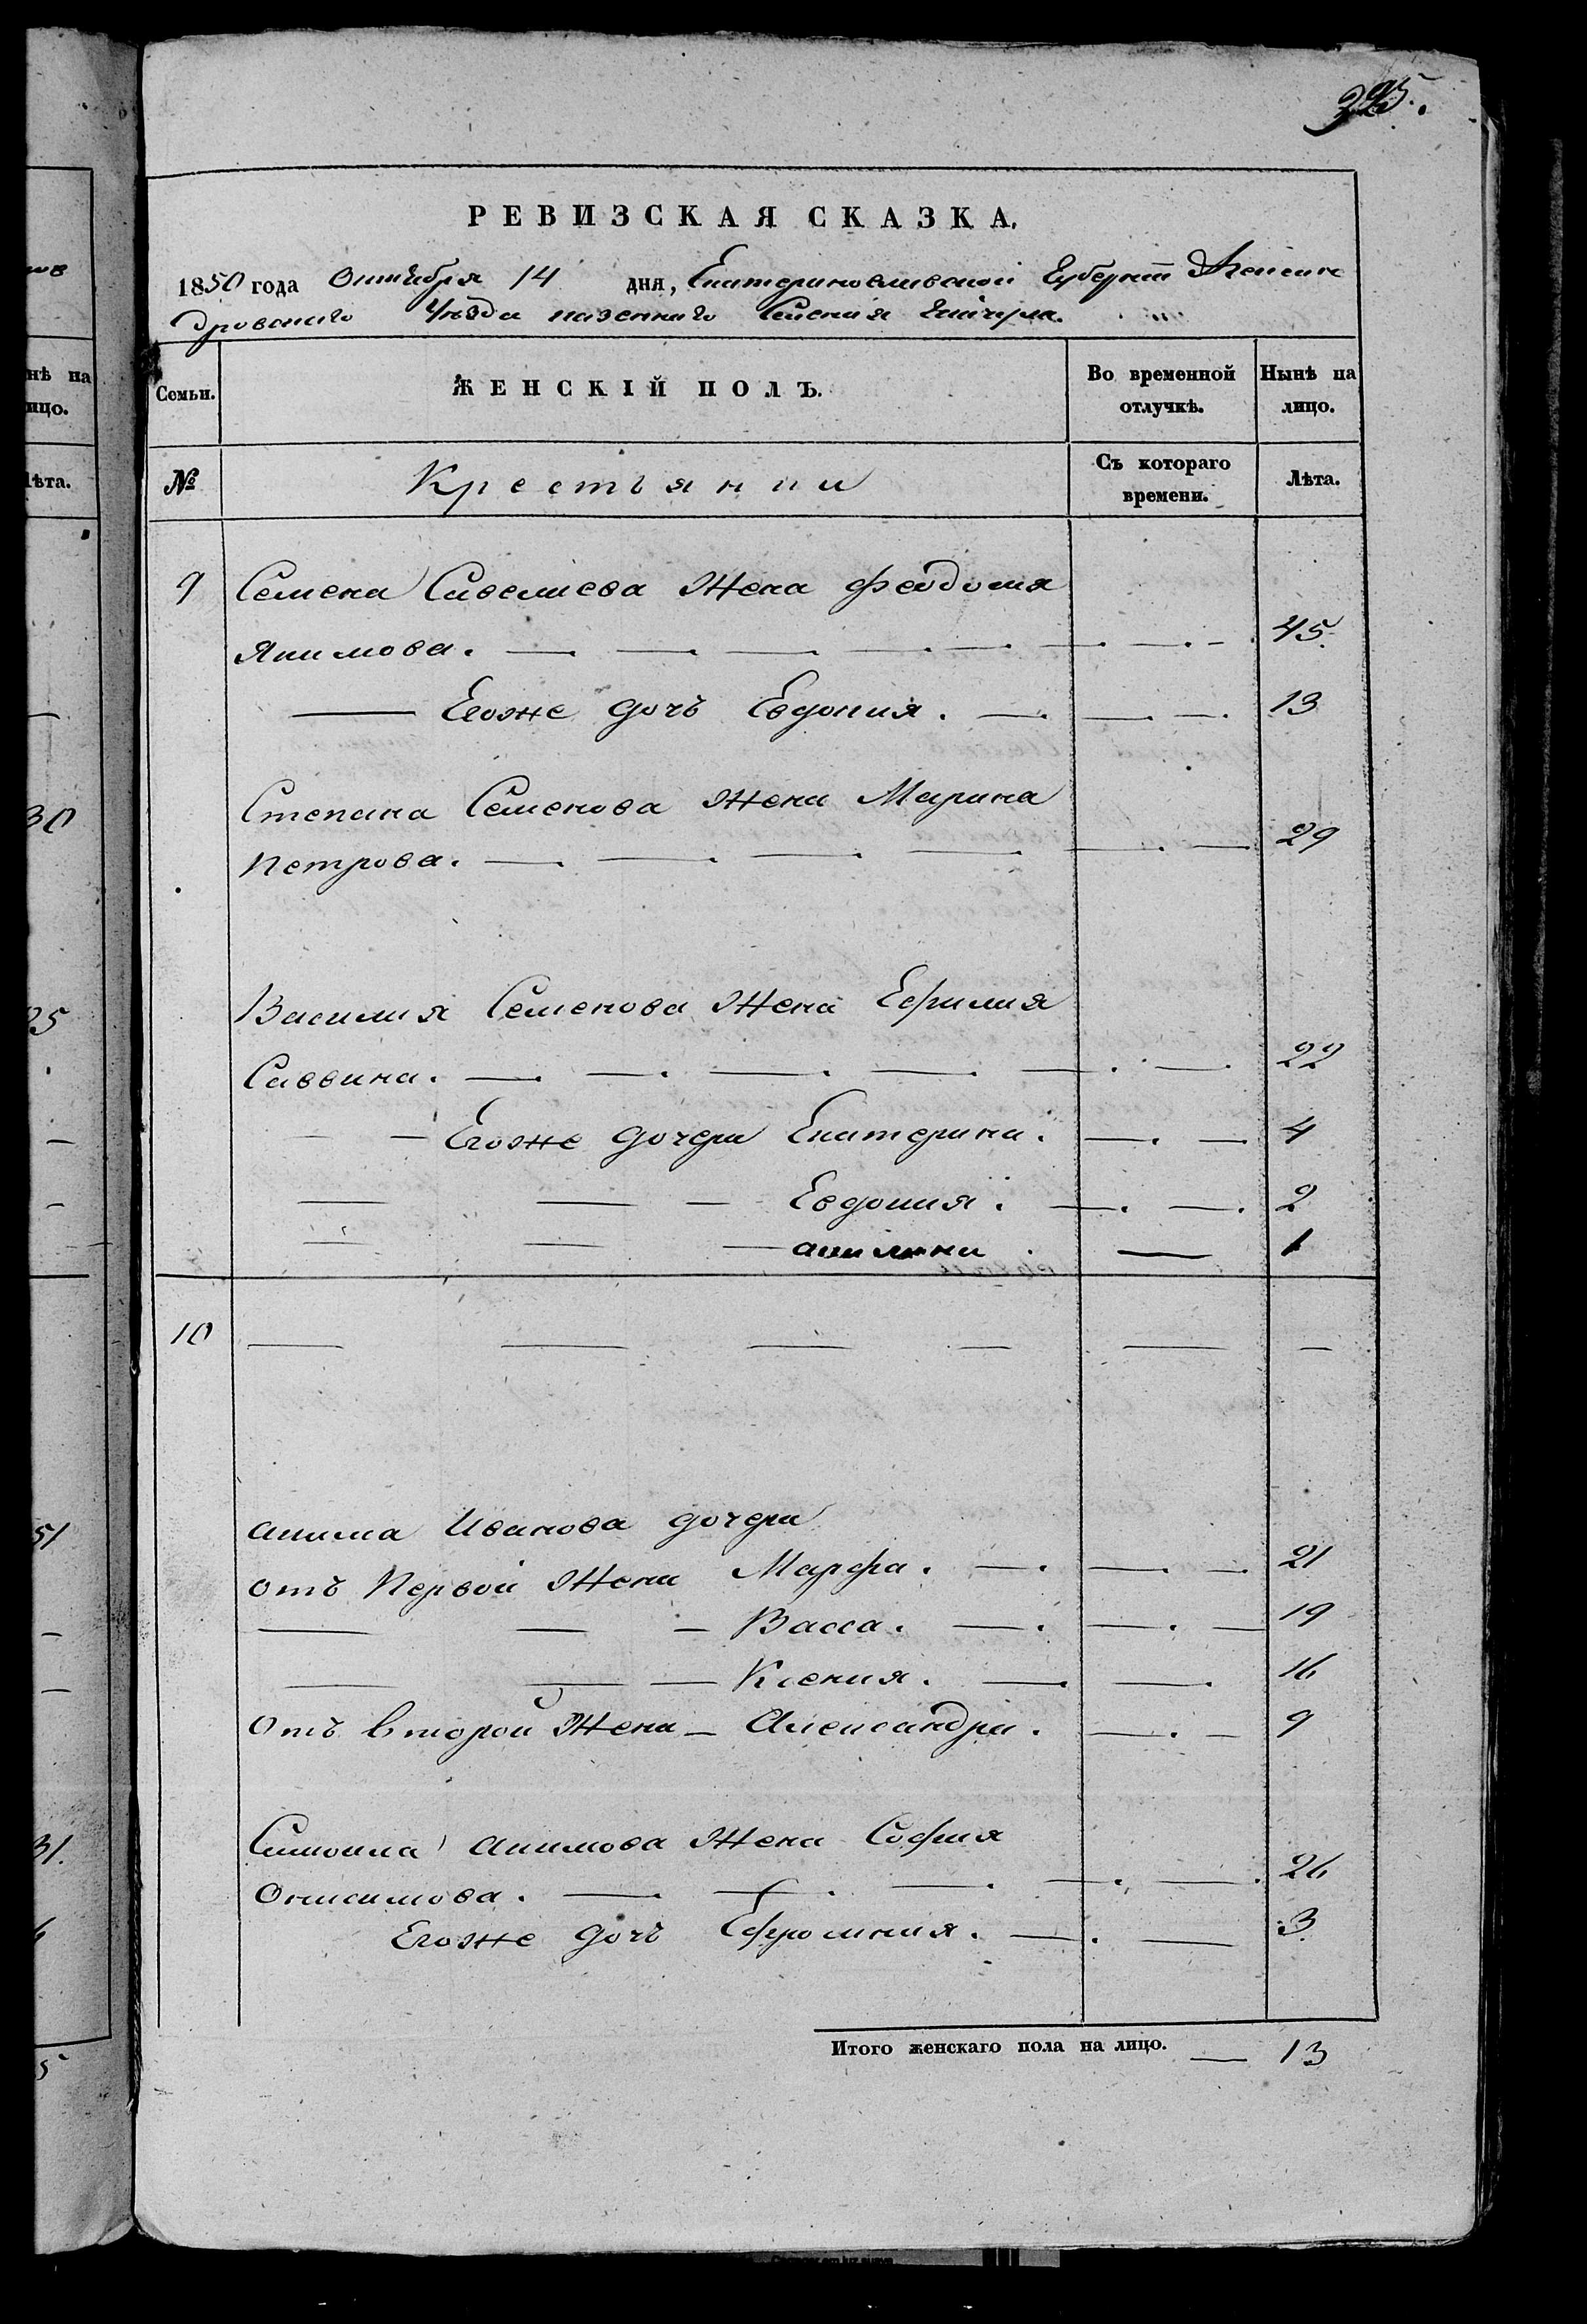 395.
РЕВИЗСКАЯ СКАЗКА.
1850 года Октября 14 дня, Екатеринославской Губернии Алексан
дровского Уезда казенного Селения
нѣ на
ицо.
Семьи. ЖЕНСКІЙ ПОЛЪ. Во временной отлучкѣ. Нынѣ на лицо.
ѣта.
№ Крестьянки Съ котораго времени. Лѣта.
9 Семена Савелиева Жена Феодосия
Якимова. 45.
Егоже дочь Евдокия. 13
Степана Семенова Жена Марина
30
Петрова. 29
Василия Семенова Жена Ефимия
25
Саввина. 22
Егоже дочери Екатерина. 4
Евдокия. 2
акилина 1
10
акима Иванова дочери
51
отъ Первой Жени Марфа. 21
Васса. 19
Ксения. 16
Отъ второй Жени Александра. 9
Самоила акимова Жена София
31.
Онисимова. 26
Егоже дочь Ефросиния. 3
Итого женскаго пола на лицо. 13
5